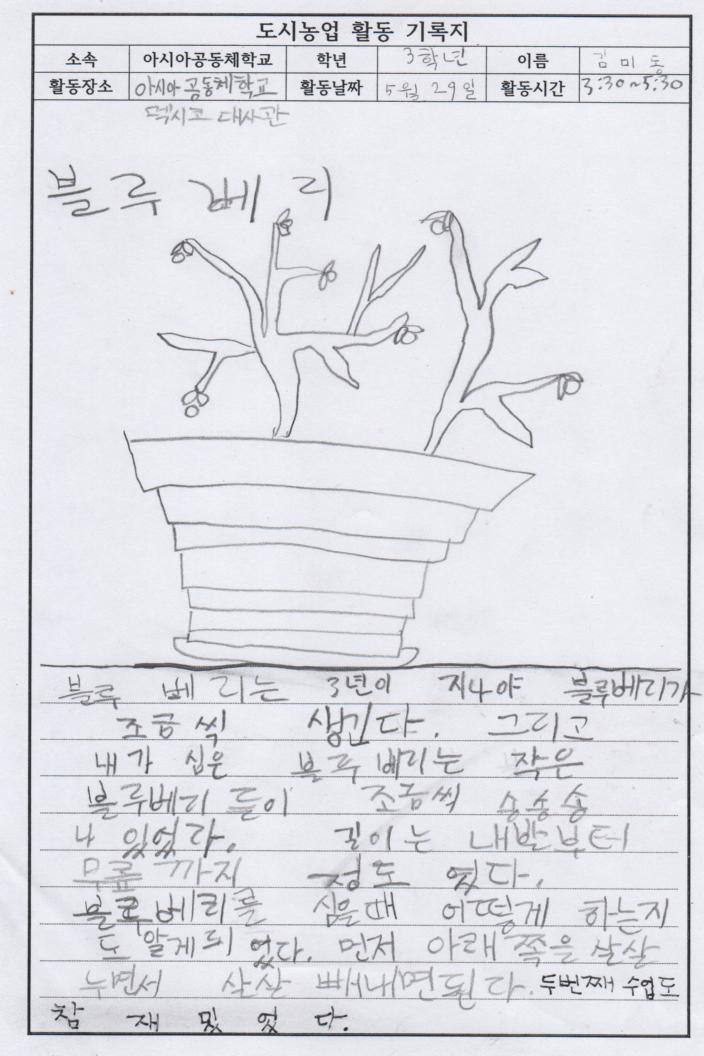 도시농업 활동 기록지
소속 아시아공동체학교 학년 3학년 이름 김미동
활동장소 아시아공동체학교 활동날짜 5월 29일 활동시간 3:30~5:30
멕시코 대사관
블루베리
블루베리는 3년이 지나야 블루베리가
조금씩 생긴다. 그리고
내가 심은 블루베리는 작은
블루베리들이 조금씩 송송송
나 있었다. 길이는 내발부터
무릎까지 정도 였다.
블루베리를 심을때 어떻게 하는지
도 알게되었다. 먼저 아래쪽을 살살
누면서 살살 빼내면된다. 두번째 수업도
참 재밌었다.